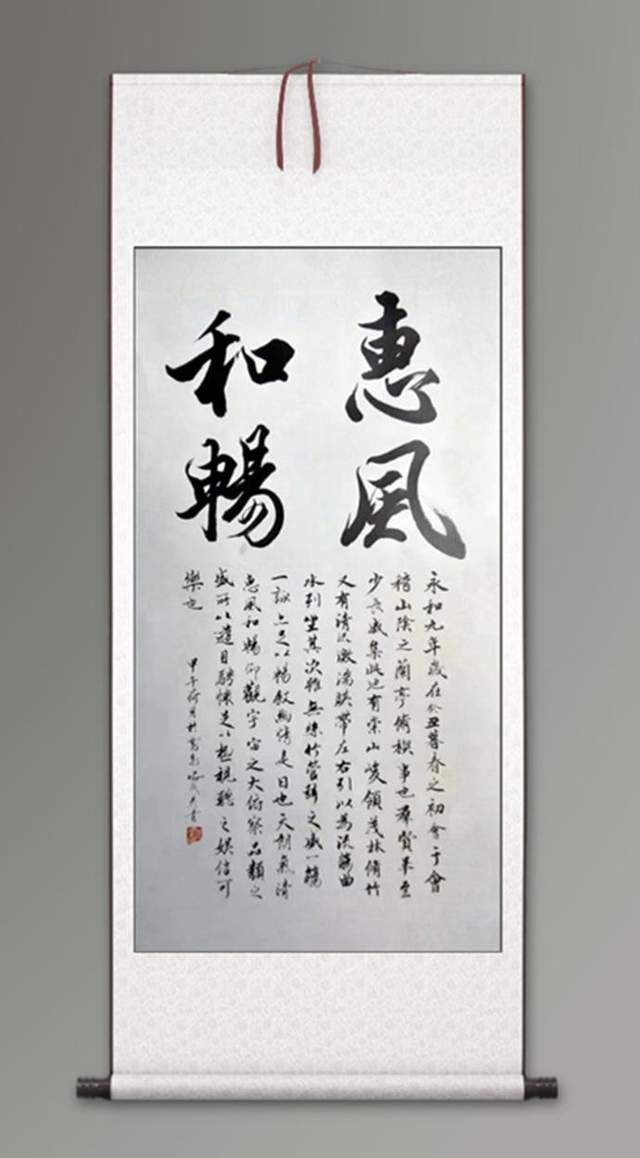 惠風
和暢
永和九年歲在癸丑暮春之初會于會
稽山陰之蘭亭脩稧事也羣賢畢至
少長咸集此地有崇山峻領茂林脩竹
又有清流激湍暎帶左右引以為流觴曲
水列坐其次雖無絲竹管絃之盛一觴
一詠亦足以暢叙幽情是日也天朗氣清
惠風和暢仰觀宇宙之大俯察品類之
盛所以遊目騁懷足以極視聽之娛信可
樂也
甲午荷月於